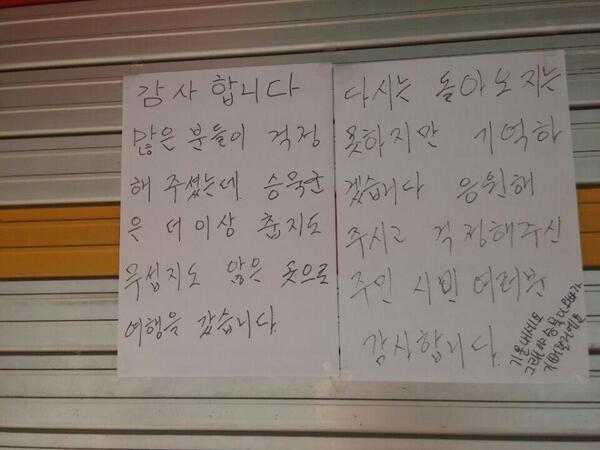 감사합니다
많은 분들이 걱정
해 주셨는데 승욱군
은 더 이상 춥지도
무섭지도 않은 곳으로
여행을 갔습니다.
다시는 돌아오지는
못하지만 기억하
겠습니다 응원해
주시고 걱정해주신
주민 시민 여러분
감사합니다.
기운내세요
그래야 승욱이